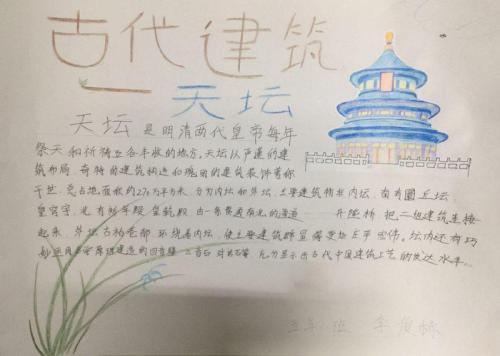 古代建筑
天坛
天坛是明清两代皇帝每年
祭天和祈祷五谷丰收的地方。天坛以严谨的建
筑布局、奇特的建筑构造和瑰丽的建筑装饰著称
于世。总占地面积约270万平方米,分为内坛和外坛,主要建筑物在内坛,南有圜丘坛
皇穹宇,北有祈年殿 皇乾殿 由一条贯通南北的 丹陛桥 把二组建筑连接
起来 外坛古柏苍郁 环绕着内坛,使主要建筑群显得更加庄严宏伟。坛内还有巧
妙运用声学原理建造的回音壁 三音石 对话石等 充分显示出古代中国建筑工艺的发达水平。
五年 班 李俊